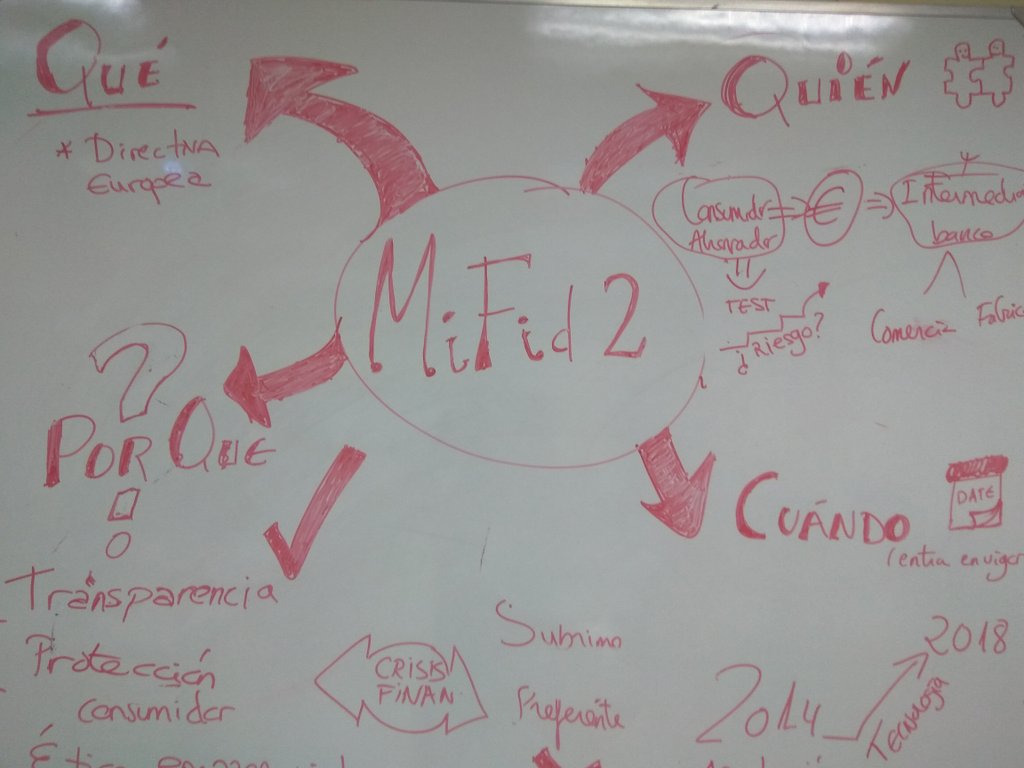 QUÉ
* Directiva
Europea
QUIÉN
Consumidor
Ahorrador
€
Intermedia
banco
TEST
¿Riesgo?
Comercia
Fabric
MiFid 2
?
POR QUE
!
Transparencia
Protección
consumidor
CRISIS
FINAN.
Subrime
Preferente
CUÁNDO
DATE
(entra en vigor
2014
2018
Tecnología